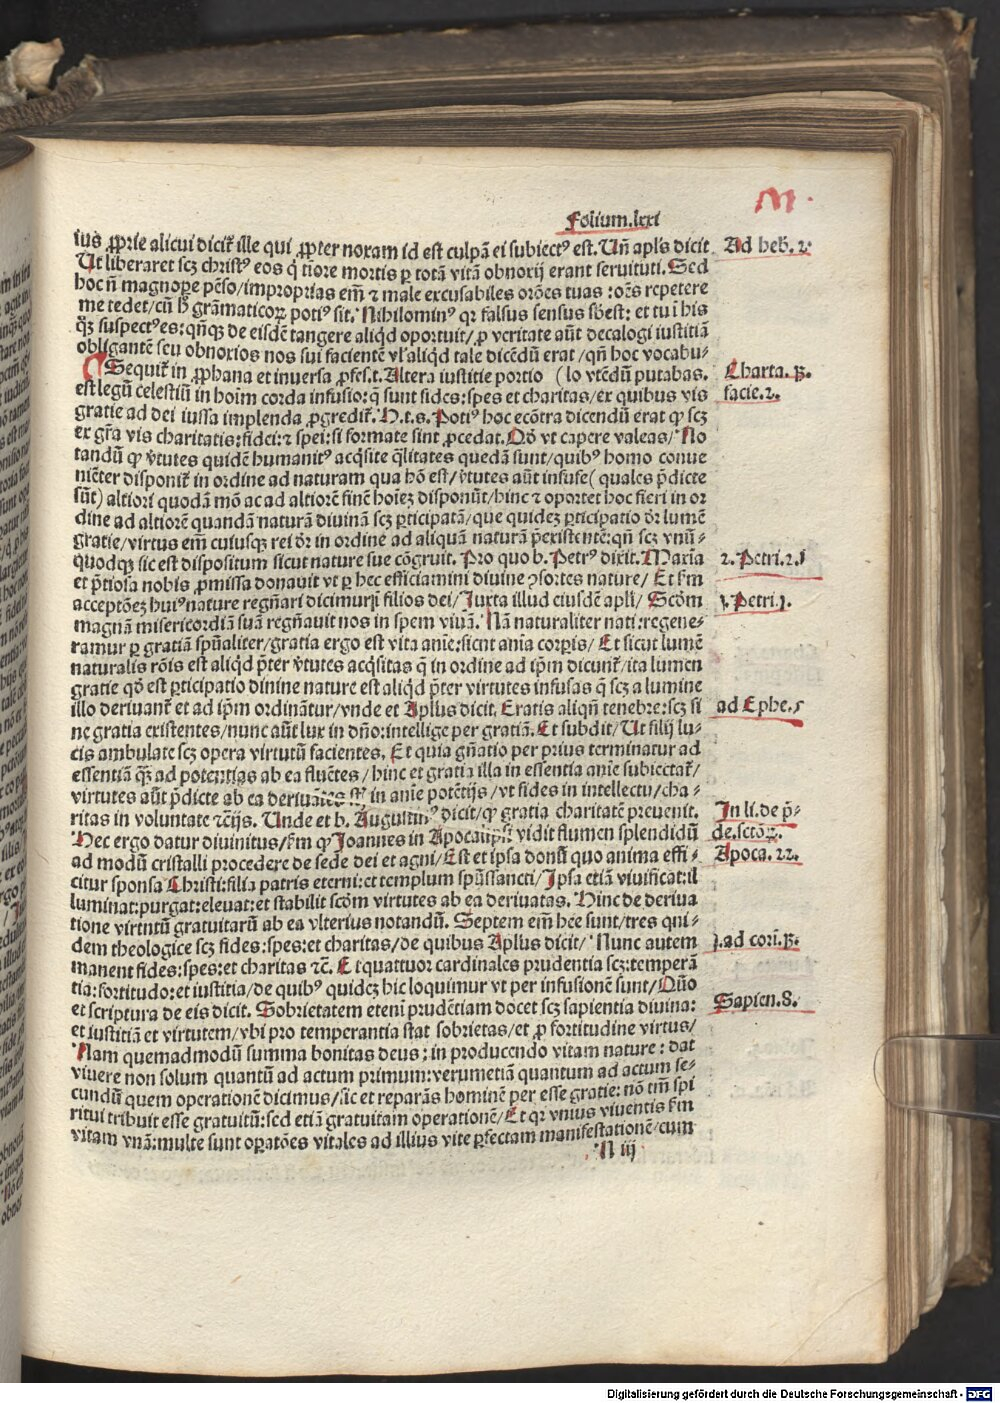 M.
Folium.lxxi
ius ꝓprie alicui dicit᷑ ille qui ꝓpter noxam id est culpā ei subiectꝰ est. Uñ apłs dicit
Ad heb̄. 2.
Ut liberaret scꝫ christꝰ eos q̄ tiore mortis ꝑ totā vitā obnoxij erant seruituti. Sed
hoc ñ magnoꝑe pēso/improprias em̄ ⁊ male excusabiles orōes tuas : oēs repetere
me tedet/cū h̄ grāmaticoꝝ potiꝰ sit. Nihilominꝰ qꝛ falsus sensus sbest: et tu ī his
q̄ꝫ suspectꝰ es: qñqꝫ de eisdē tangere aliqd oportuit/ ꝓ veritate aūt decalogi iustitiā
obligantē seu obnoxios nos sui facientē vl' aliqd tale dicēdū erat / qñ hoc vocabu⸗
Sequit᷑ in ꝓphana et inuersa ꝓfes.t. Altera iustitie portio (lo vtēdū putabas.
Charta. p̄.
est legū celestiū in hoīm corda infusio: q̄ sunt fides: spes et charitas/ ex quibus vis
facie. 2.
gratie ad dei iussa implenda ꝓgredit᷑. N.t.s. Potiꝰ hoc ecōtra dicendū erat ꝙ scꝫ
ex gr̄a vis charitatis: fidei: ⁊ spei: si formate sint ꝓcedat. Qd̄ vt capere valeas/ No
tandū ꝙ v̄tutes quidē humanitꝰ acq̄site q̄litates quedā sunt/ quibꝰ homo conue
niēter disponit᷑ in ordine ad naturam qua hō est/ v̄tutes aūt infuse ( quales p̄dicte
sūt) altiori quodā mō ac ad altiorē finē hoīeꝫ disponūt/ hinc ⁊ oportet hoc fieri in or
dine ad altiorē quandā naturā diuinā scꝫ ꝑticipatā/ que quideꝫ ꝑticipatio dr̄ lumē
gratie/ virtus em̄ cuiusqꝫ rei dr̄ in ordine ad aliquā naturā p̄existentē: qñ scꝫ vnū⸗
quodqꝫ sic est dispositum sicut nature sue cōgruit. Pro quo b. Petrꝰ dixit. Maxīa
2. Petri. 2. 1
et p̄tiosa nobis ꝓmissa donauit vt ꝑ hec efficiamini diuine ꝯsortes nature/ Et ẜm
acceptōeꝫ huiꝰ nature regñari dicimur ī filios dei/ Juxta illud eiusdē apłi/ Scd̄m
1. Petri. j.
magnā misericordiā suā regñauit nos in spem viuā. Nā naturaliter nati: regene⸗
ramur ꝑ gratiā spūaliter/ gratia ergo est vita anīe: sicut anīa corpīs/ Et sicut lumē
naturalis rōis est aliqd p̄ter v̄tutes acq̄sitas q̄ in ordine ad ip̄m dicunt᷑/ ita lumen
gratie qd̄ est ꝑticipatio diuine nature est aliqd p̄ter virtutes infusas q̄ scꝫ a lumine
illo deriuant᷑ et ad ip̄m ordinātur/ vnde et Apłus dicit. Eratis aliqñ tenebre: scꝫ si
ad Ephe. 5
ne gratia existentes/ nunc aūt lux in dño: intellige per gratiā. Et subdit/ Ut filij lu⸗
cis ambulate scꝫ opera virtutū facientes. Et quia gñatio per prius terminatur ad
essentiā q̄ꝫ ad potentias ab ea fluētes / hinc et gratia illa in essentia anīe subiectat᷑/
virtutes aūt p̄dicte ab ea deriuātes in anīe potētijs / vt fides in intellectu/ cha⸗
ritas in voluntate ⁊c̄ijs. Unde et b. Augustinꝰ dicit/ ꝙ gratia charitatē preuenit.
In li. de p̄⸗
Hec ergo datur diuinitus/ ẜm ꝙ Joannes in Apocalypsi vidit flumen splendidū
de. sctōꝝ.
ad modū cristalli procedere de sede dei et agni/ Est et ipsa donū quo anima effi⸗
Apoca. 22.
citur sponsa Christi: filia patris eterni: et templum spūssancti/ Ipsa etiā viuificat: il
luminat: purgat: eleuat: et stabilit scd̄m virtutes ab ea deriuatas. Hinc de deriua
tione virtutū gratuitarū ab ea vlterius notandū. Septem em̄ hee sunt/ tres qui⸗
dem theologice scꝫ fides: spes: et charitas/ de quibus Apłus dicit/ Nunc autem
j. ad cori. p̄.
manent fides: spes: et charitas ⁊c̄. Et quattuor cardinales prudentia scꝫ: temperā
tia: fortitudo: et iustitia/ de quibꝰ quideꝫ hic loquimur vt per infusionē sunt/ Quō
et scriptura de eis dicit. Sobrietatem eteni prudētiam docet scꝫ sapientia diuina:
Sapien. 8.
et iustitiā et virtutem/ vbi pro temperantia stat sobrietas/ et ꝓ fortitudine virtus/
Nam quemadmodū summa bonitas deus ; in producendo vitam nature : dat
viuere non solum quantū ad actum primum: verumetiā quantum ad actum se⸗
cundū quem operationē dicimus/ sic et reparās hominē per esse gratie: nō tm̄ spi
ritui tribuit esse gratuitū: sed etiā gratuitam operationē/ Et qꝛ vnius viuentis ẜm
vitam vnā: multe sunt oꝑatōes vitales ad illius vite ꝑfectam manifestationē/ cum
N iij
Digitalisierung gefördert durch die Deutsche Forschungsgemeinschaft - DFG